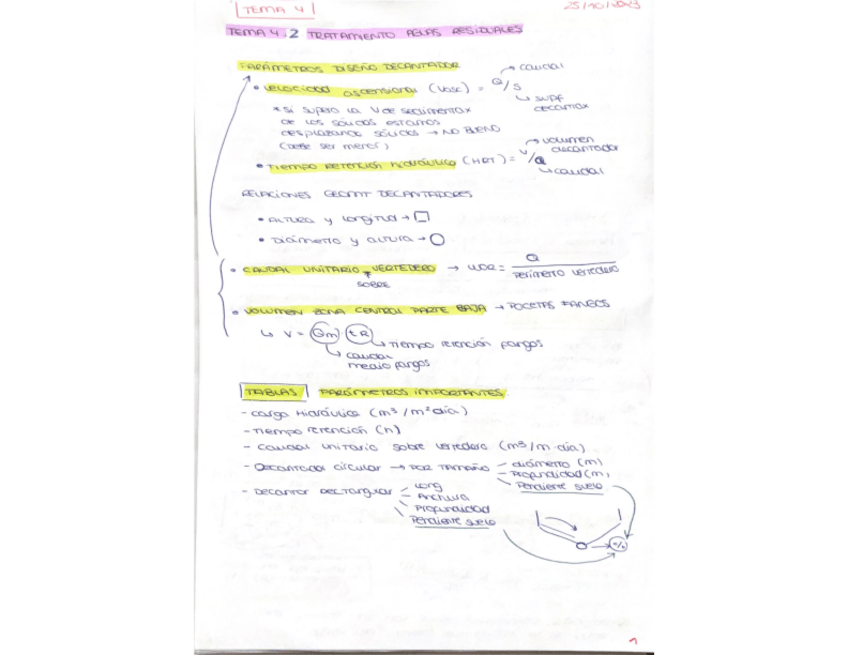 TEMA 4
25/10/2023
TEMA 4.2 TRATAMIENTO AGUAS RESIDUALES
PARÁMETROS DISEÑO DECANTADOR
• velocidad ascensional (Vasc) = Q/S
→ caudal
↳ supf decantax
* si supero la V de sedimentax
de los sólidos estamos
desplazando sólidos → NO BUENO
(debe ser menor)
• Tiempo retención hidráulico (HRT) = V/Q
→ volumen decantador
↳ caudal
RELACIONES GEOMT DECANTADORES
• Altura y longitud → □
• Diámetro y altura → ○
• CAUDAL UNITARIO VERTEDERO → = Q / Perímetro vertedero
SOBRE
• VOLUMEN ZONA CENTRAL PARTE BAJA → POCETAS FANGOS
↳ V = Qm tR
↳ Tiempo retención fangos
↳ caudal
medio fangos
TABLAS PARÁMETROS IMPORTANTES
- carga hidráulica (m³/m² día)
- Tiempo retención (h)
- Caudal unitario sobre vertedero (m³/m·día)
- Decantador circular → POR TAMAÑO – diámetro (m)
– Profundidad (m)
Pendiente suelo
- Decantor rectangular – Long
– Anchura
Profundidad
Pendiente suelo
%
1